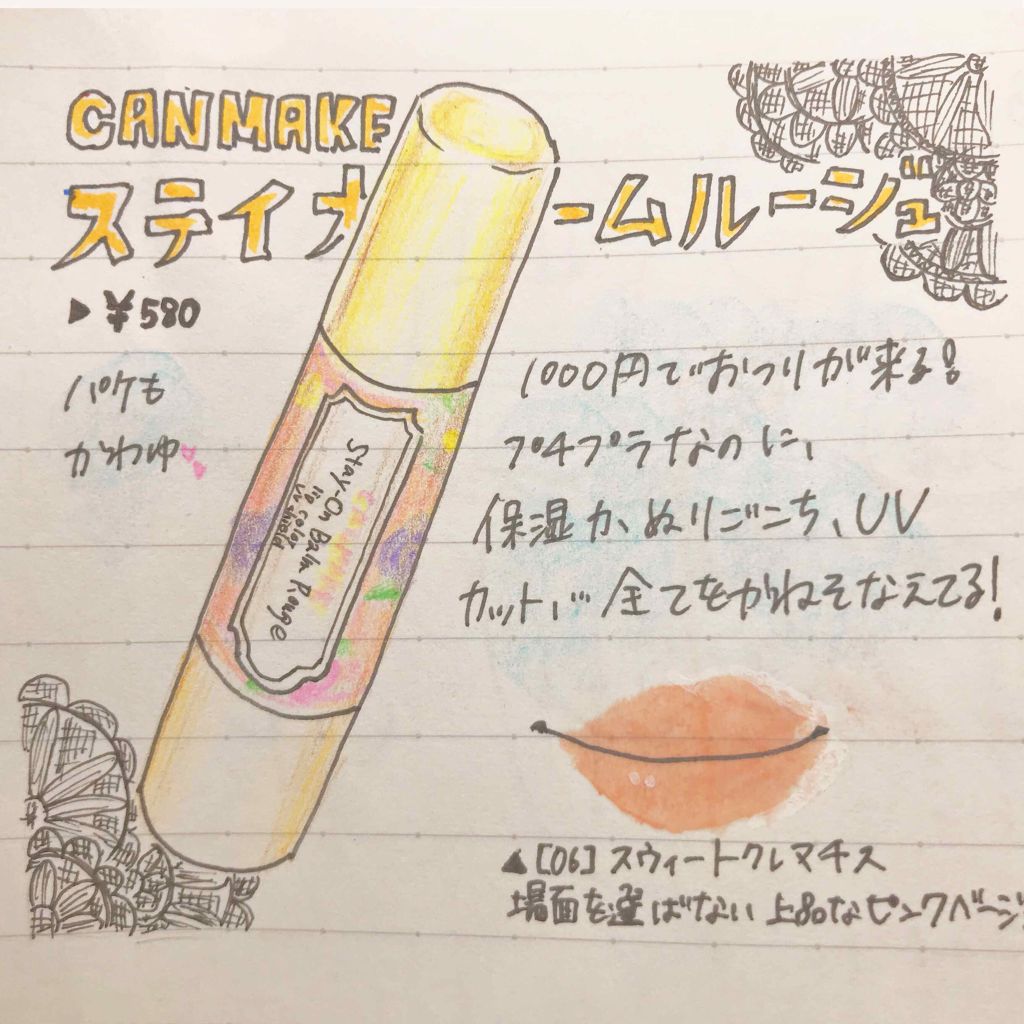 CANMAKE
ステイオ ームルージュ
▶ ¥580
パケも
かわゆ
1000円でおつりが来る!
プチプラなのに、
保湿力、ぬりごこち、UV
カット、、、全てをかねそなえてる!
Stay-On Balm Rouge
lip color
UV shield
▲[06]スウィートクレマチス
場面を選ばない上品なピンクベージュ